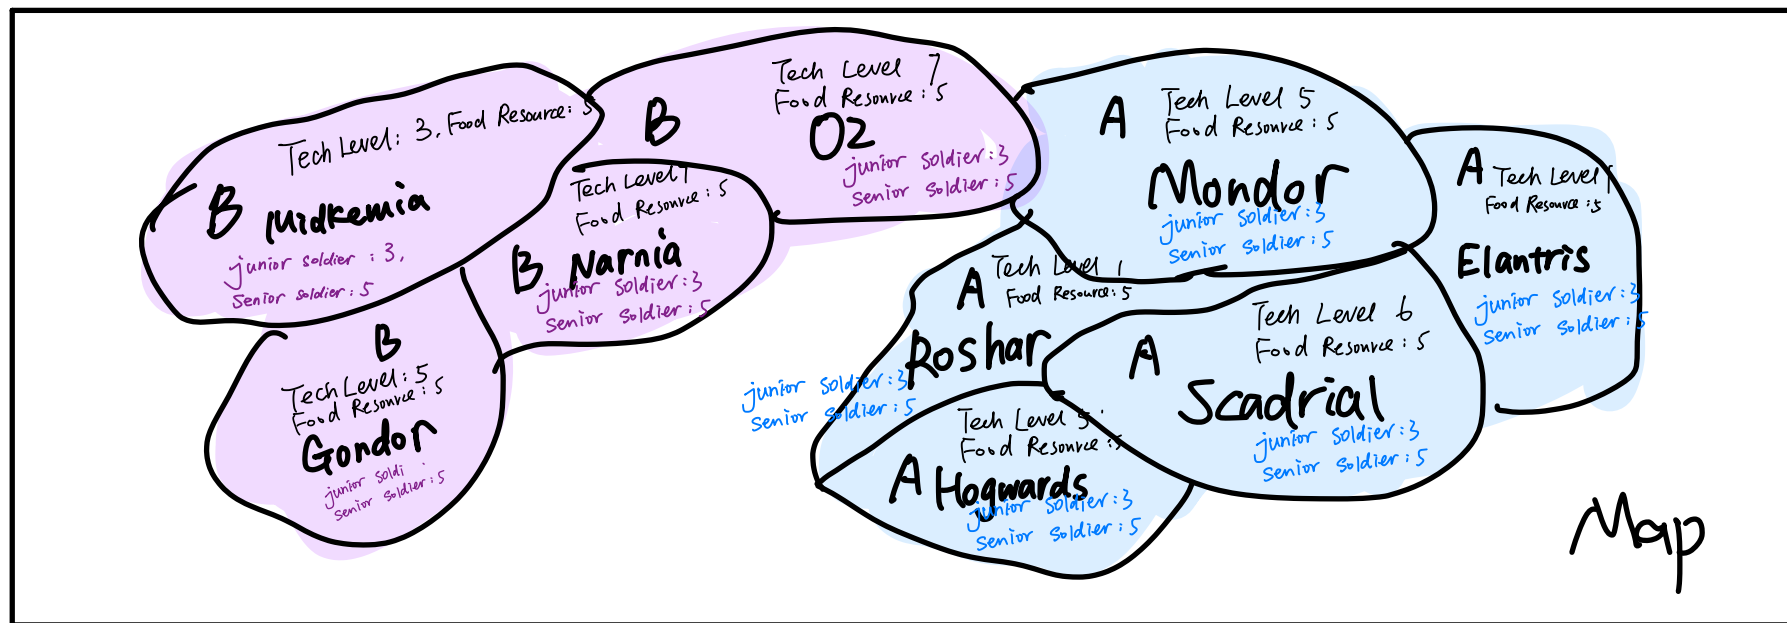 Tech Level: 3, Food Resource: 5
B Midkemia
junior soldier: 3,
senior soldier: 5
Tech Level 7
Food Resource: 5
B
O2
junior soldier: 3
senior soldier: 5
Tech Level 1
Food Resource: 5
B Narnia
junior soldier: 3
senior soldier: 5
B
Tech Level: 5
Food Resource: 5
Gondor
junior soldi
senior soldier: 5
A
Tech Level 5
Food Resource: 5
Mondor
junior soldier: 3
senior soldier: 5
A Tech Level
Food Resource: 5
Elantris
junior soldier: 3
senior soldier: 5
A Tech Level 1
Food Resource: 5
Roshar
junior soldier: 3
senior soldier: 5
Tech Level 6
Food Resource: 5
A
Scadrial
junior soldier: 3
senior soldier: 5
Tech Level 5
Food Resource: 5
A Hogwards
junior soldier: 3
senior soldier: 5
Map